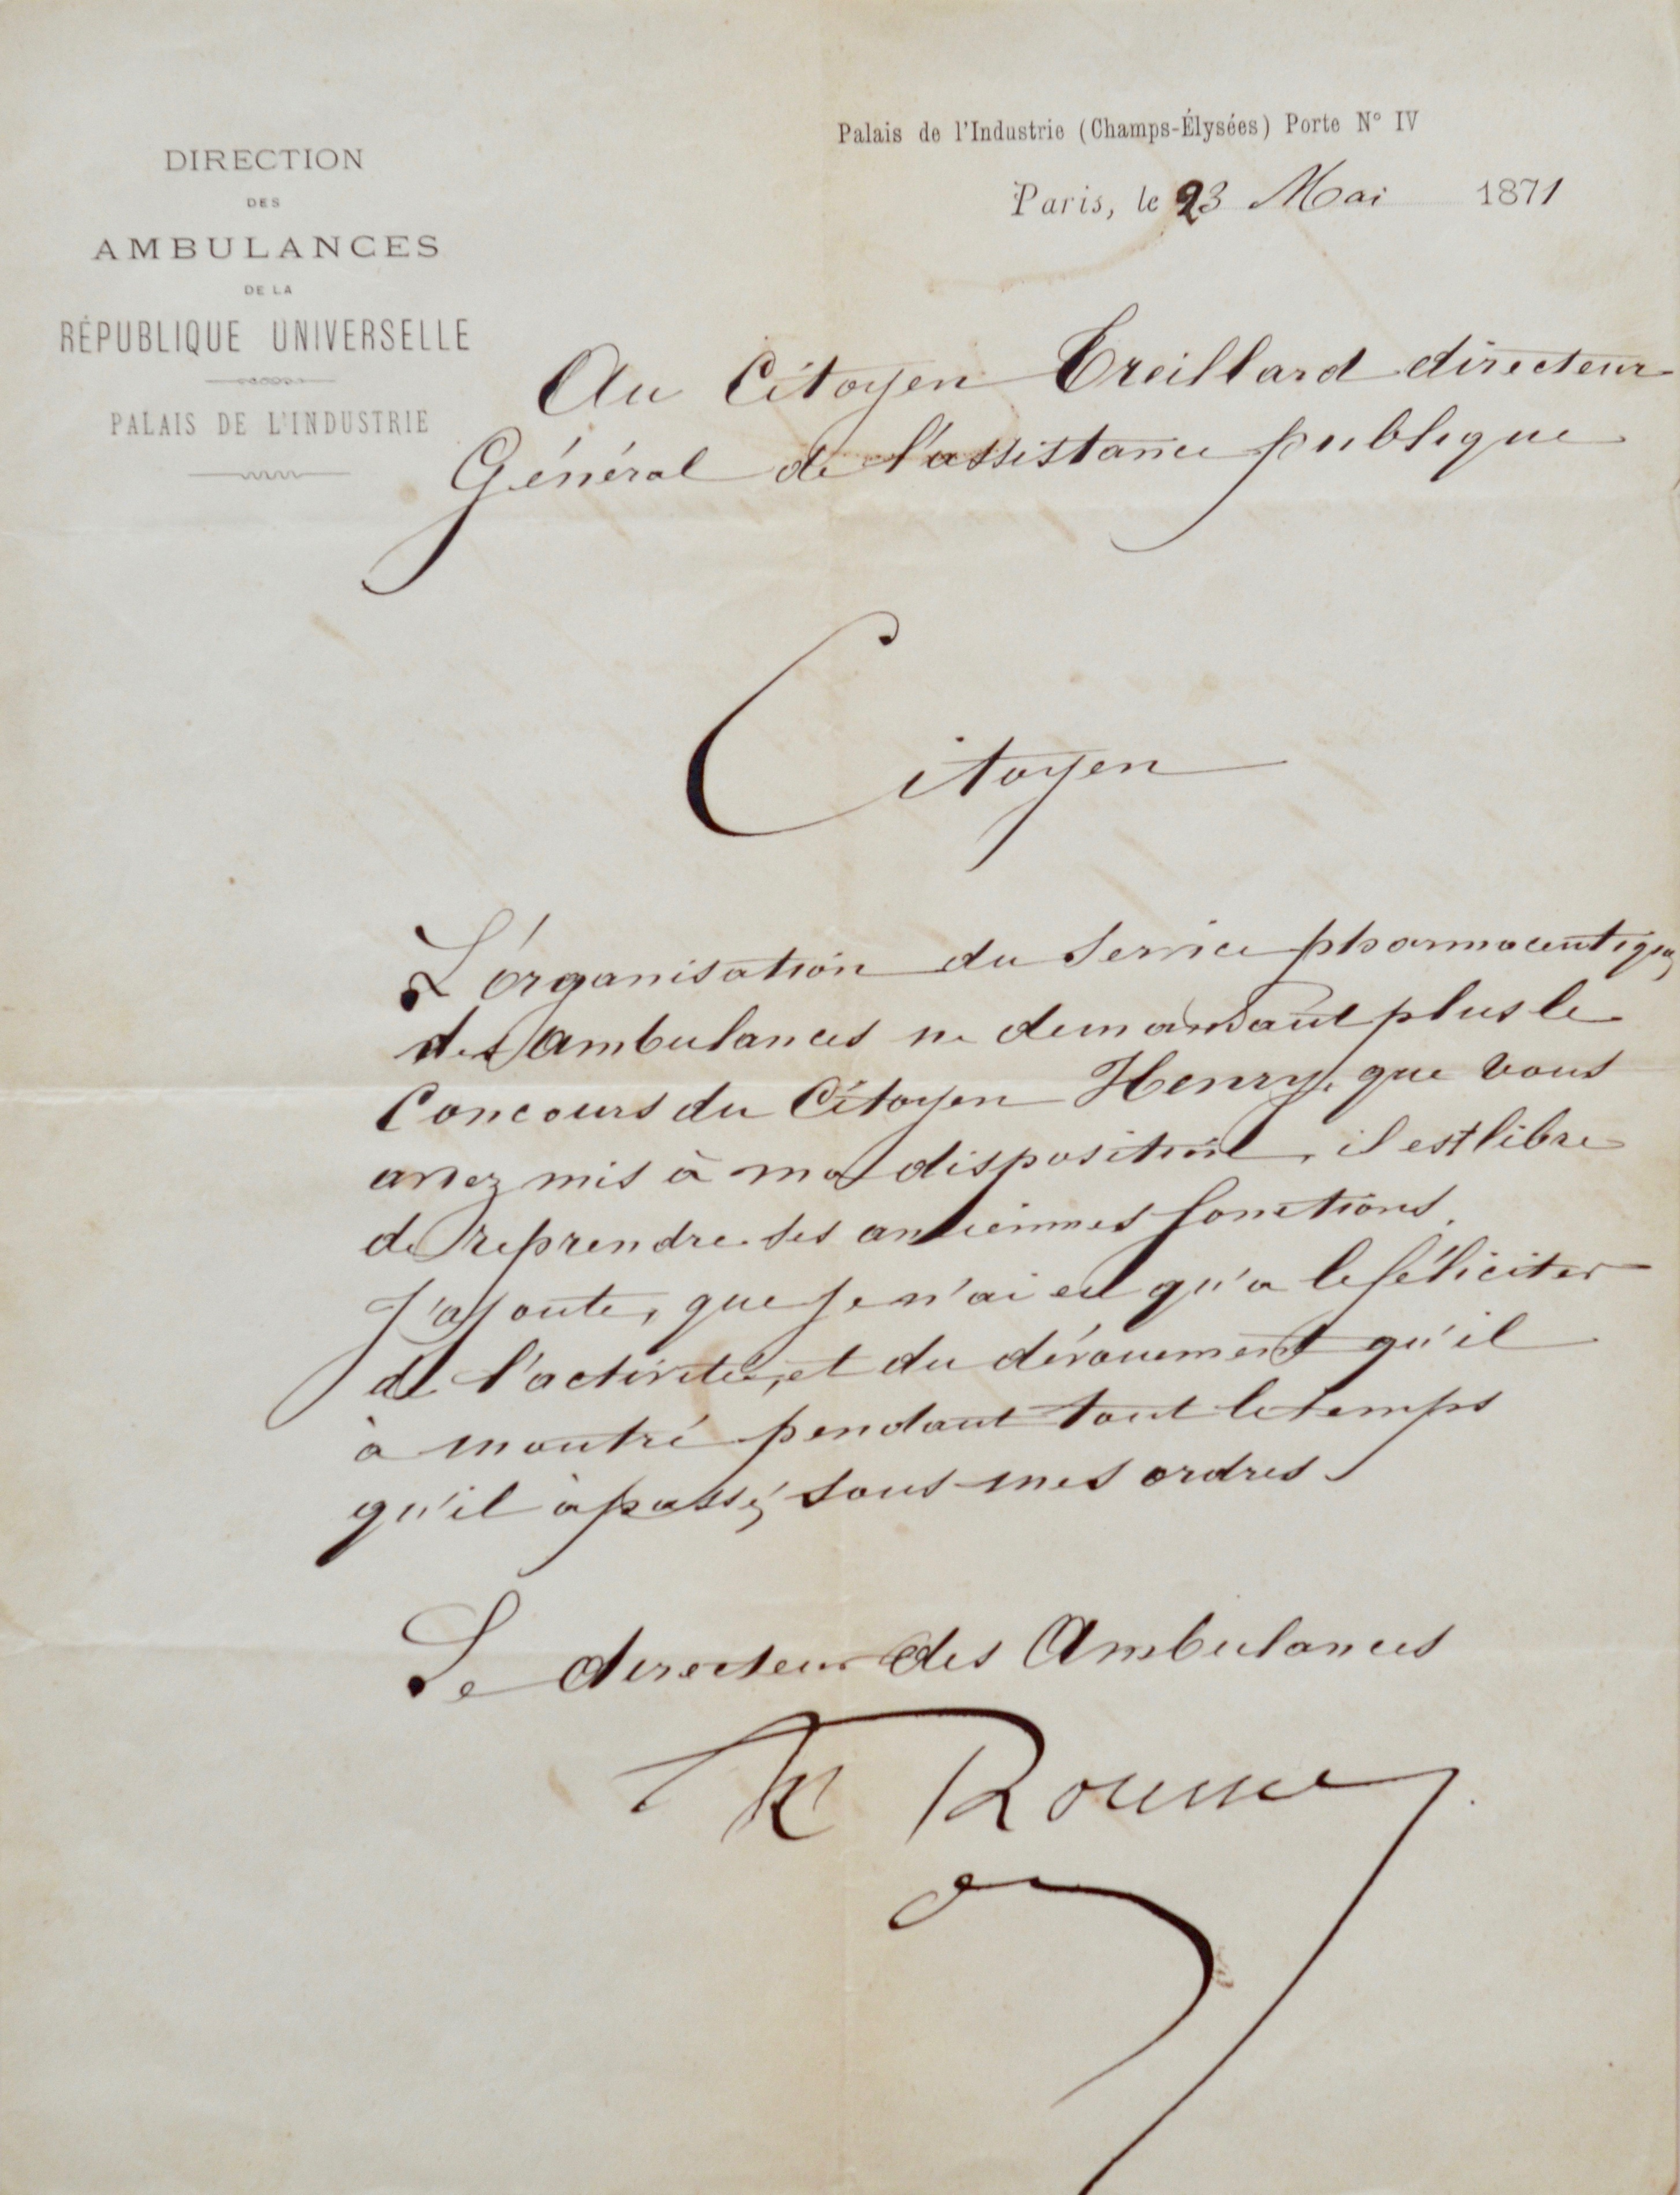 DIRECTION
DES
AMBULANCES
DE LA
RÉPUBLIQUE UNIVERSELLE
PALAIS DE L'INDUSTRIE
Palais de l'Industrie (Champs-Élysées) Porte N° IV
Paris, le 23 Mai 1871
Au Citoyen Treillard directeur
Général de l'assistance publique
Citoyen
L'organisation du Service pharmaceutique
des ambulances ne demandant plus le
Concours du Citoyen Henry, que vous
aviez mis à ma disposition, il est libre
de reprendre ses anciennes fonctions.
J'ajoute, que je n'ai eu qu'a le féliciter
de l'activitée, et du dévouement qu'il
à montré pendant tout le temps
qu'il à passé sous mes ordres
Le directeur des Ambulances
Rousse